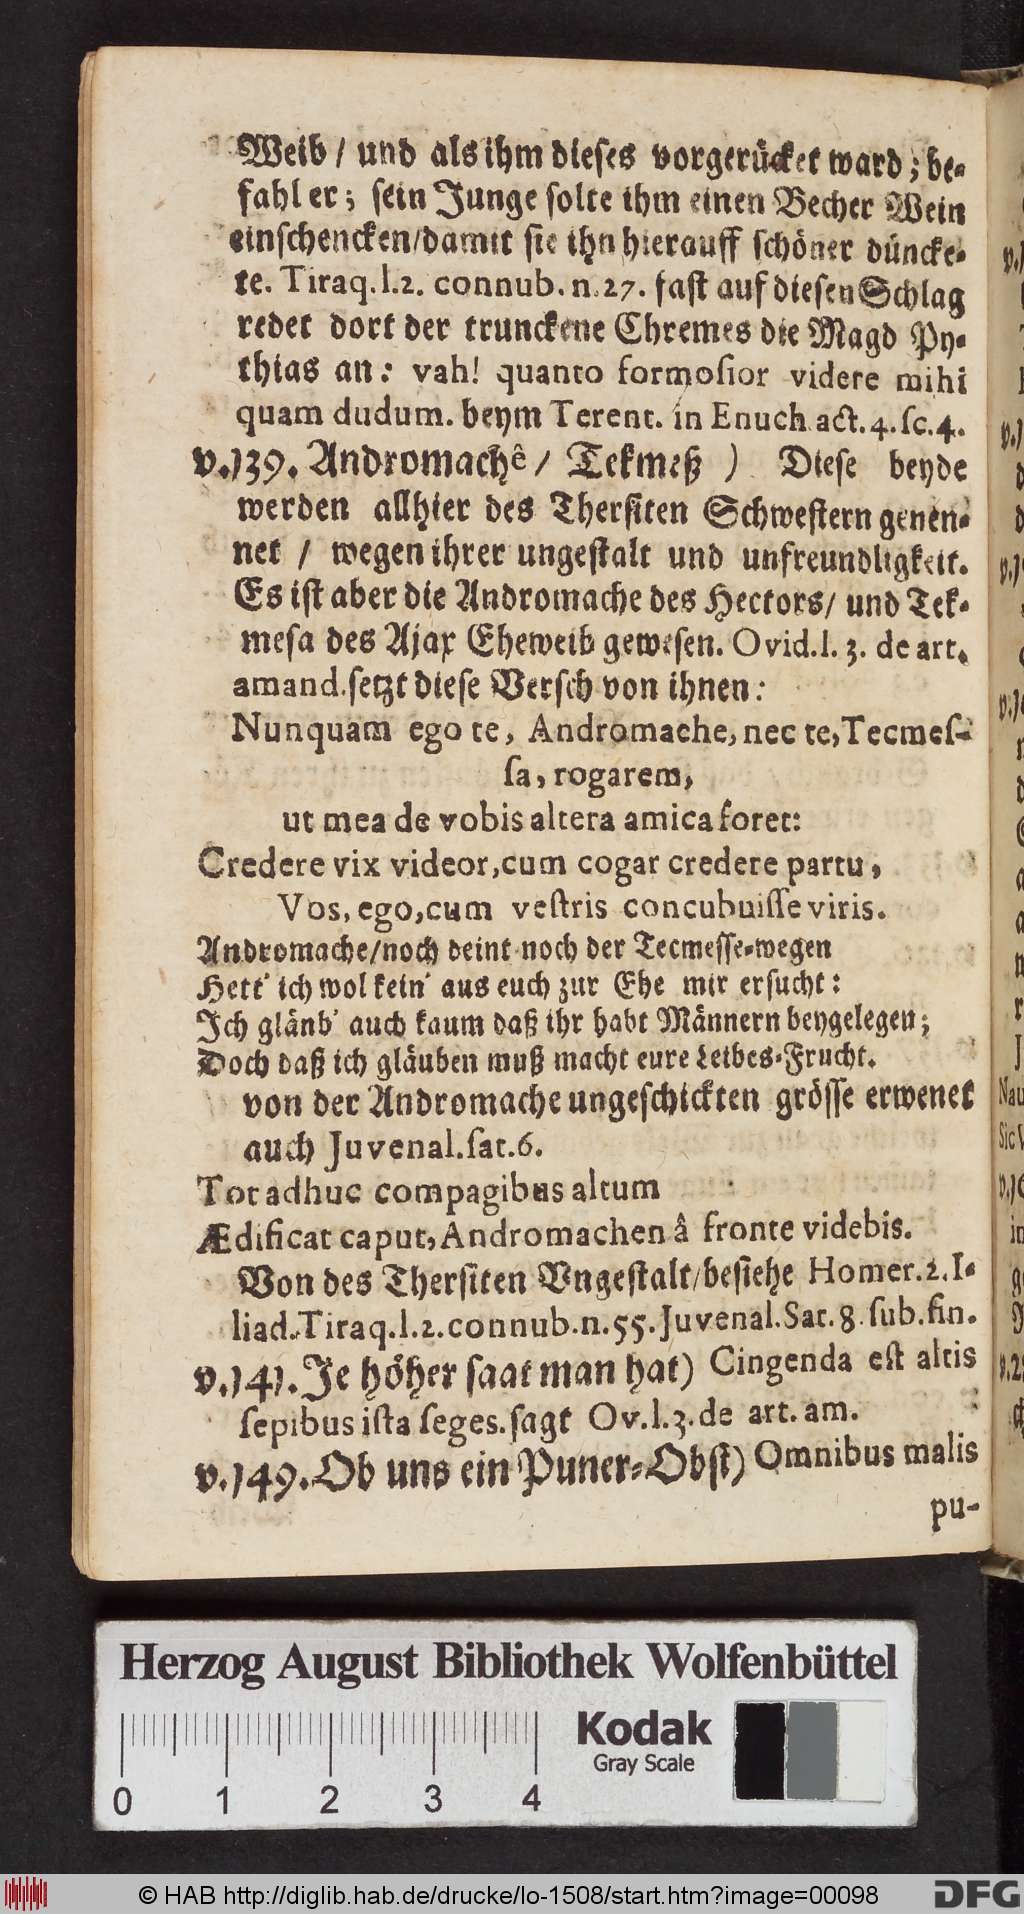 Weib / und als ihm dieses vorgerücket ward; be-
fahl er; sein Junge solte ihm einen Becher Wein
einschencken/damit sie ihn hierauff schöner düncke-
te. Tiraq. l. 2. connub. n. 27. fast auf diesen Schlag
redet dort der trunckene Chremes die Magd Py-
thias an: vah! quanto formosior videre mihi
quam dudum. beym Terent. in Enuch. act. 4. sc. 4.
v. 139. Andromachê / Tekmeß ) Diese beyde
werden allhier des Thersiten Schwestern genen-
net / wegen ihrer ungestalt und unfreundligkeit.
Es ist aber die Andromache des Hectors/ und Tek-
mesa des Ajax Eheweib gewesen. Ovid. l. 3. de art.
amand. setzt diese Versch von ihnen:
Nunquam ego te, Andromache, nec te, Tecmes-
sa, rogarem,
ut mea de vobis altera amica foret:
Credere vix videor, cum cogar credere partu,
Vos, ego, cum vestris concubuisse viris.
Andromache/noch deint noch der Tecmesse-wegen
Hett' ich wol kein' aus euch zur Ehe mir ersucht:
Ich gläub' auch kaum daß ihr habt Männern beygelegen;
Doch daß ich gläuben muß macht eure Leibes-Frucht.
von der Andromache ungeschickten grösse erwenet
auch Juvenal. sat. 6.
Tot adhuc compagibus altum
Ædificat caput, Andromachen â fronte videbis.
Von des Thersiten Vngestalt/besiehe Homer. 2. I-
liad. Tiraq. l. 2. connub. n. 55. Juvenal. Sat. 8. sub. fin.
v. 141. Je höher saat man hat) Cingenda est altis
sepibus ista seges. sagt Ov. l. 3. de art. am.
v. 149. Ob uns ein Puner-Obst) Omnibus malis
pu-
Herzog August Bibliothek Wolfenbüttel
Kodak
Gray Scale
0 1 2 3 4
© HAB http://diglib.hab.de/drucke/lo-1508/start.htm?image=00098
DFG